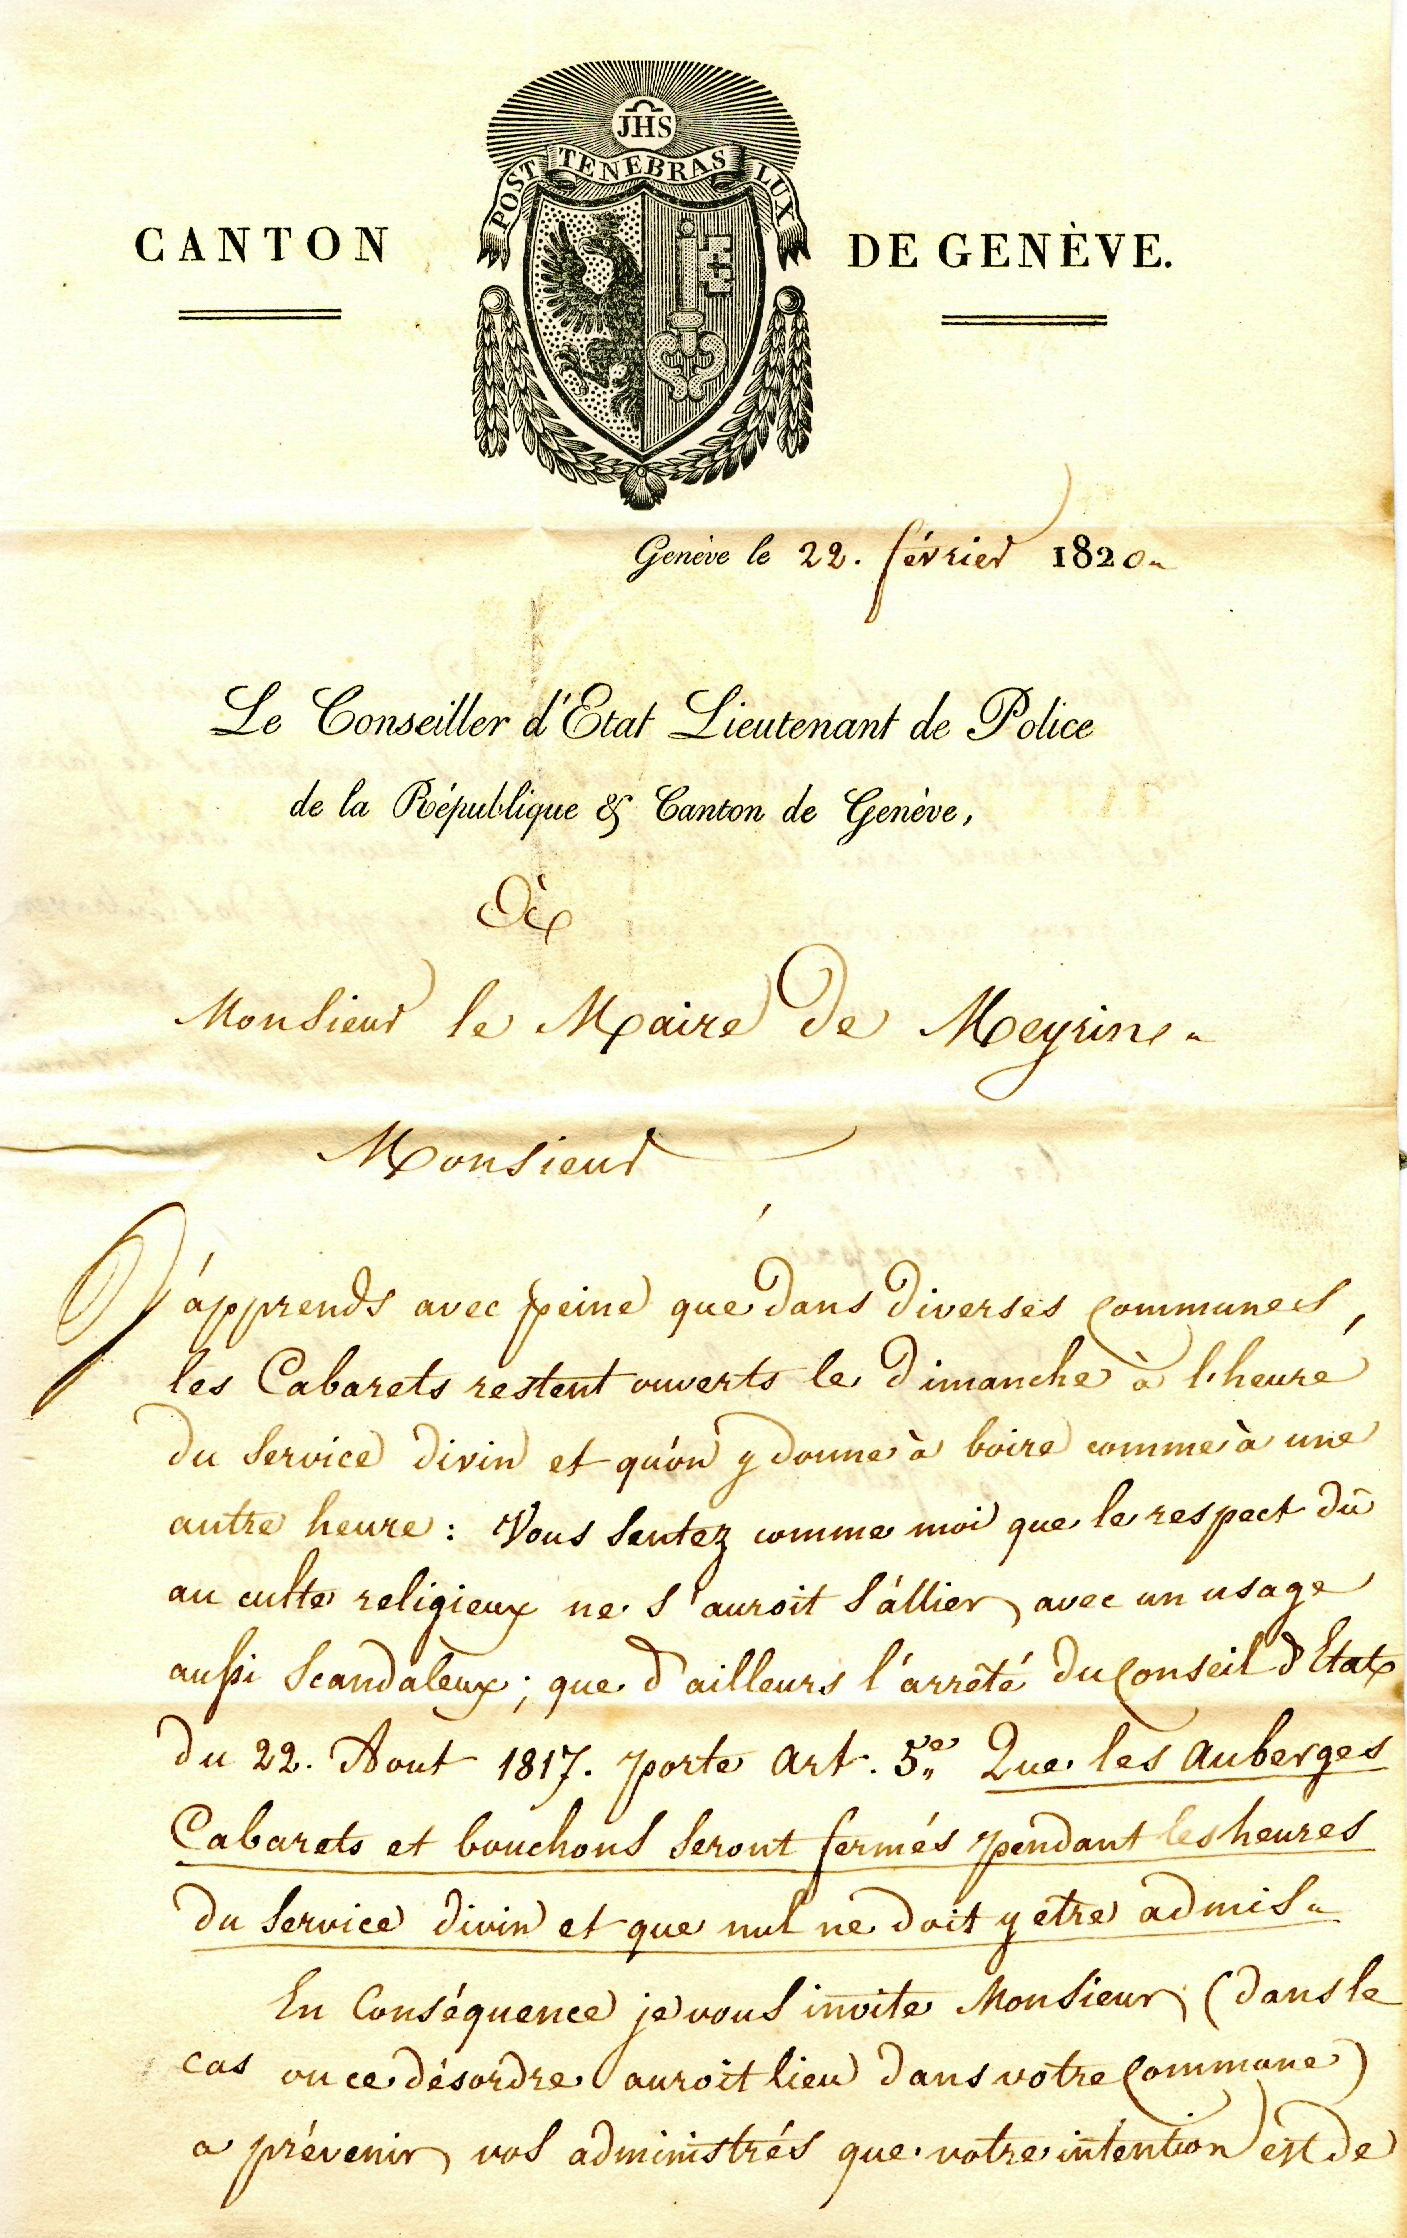 JHS
POST TENEBRAS LUX
CANTON DE GENÈVE.
Genève le 22. février 1820.
Le Conseiller d'Etat Lieutenant de Police
de la République & Canton de Genève,
A
Monsieur le Maire de Meyrin.
Monsieur
J'apprends avec peine que dans diverses Communes,
les Cabarets restent ouverts le Dimanche à l'heure
du Service divin et qu'on y donne à boire comme à une
autre heure : Vous Sentez comme moi que le respect dû
au culte religieux ne s'auroit S'allier avec un usage
aussi Scandaleux; que d'ailleurs l'arrêté du Conseil d'Etat
du 22. Aout 1817. porte Art. 5e. Que les Auberges
Cabarets et bouchons Seront fermés pendant les heures
du Service divin et que nul ne doit y etre admis.
En Conséquence je vous invite Monsieur (dans le
cas ou ce désordre auroit lieu dans votre Commune)
a prévenir vos administrés que votre intention est de